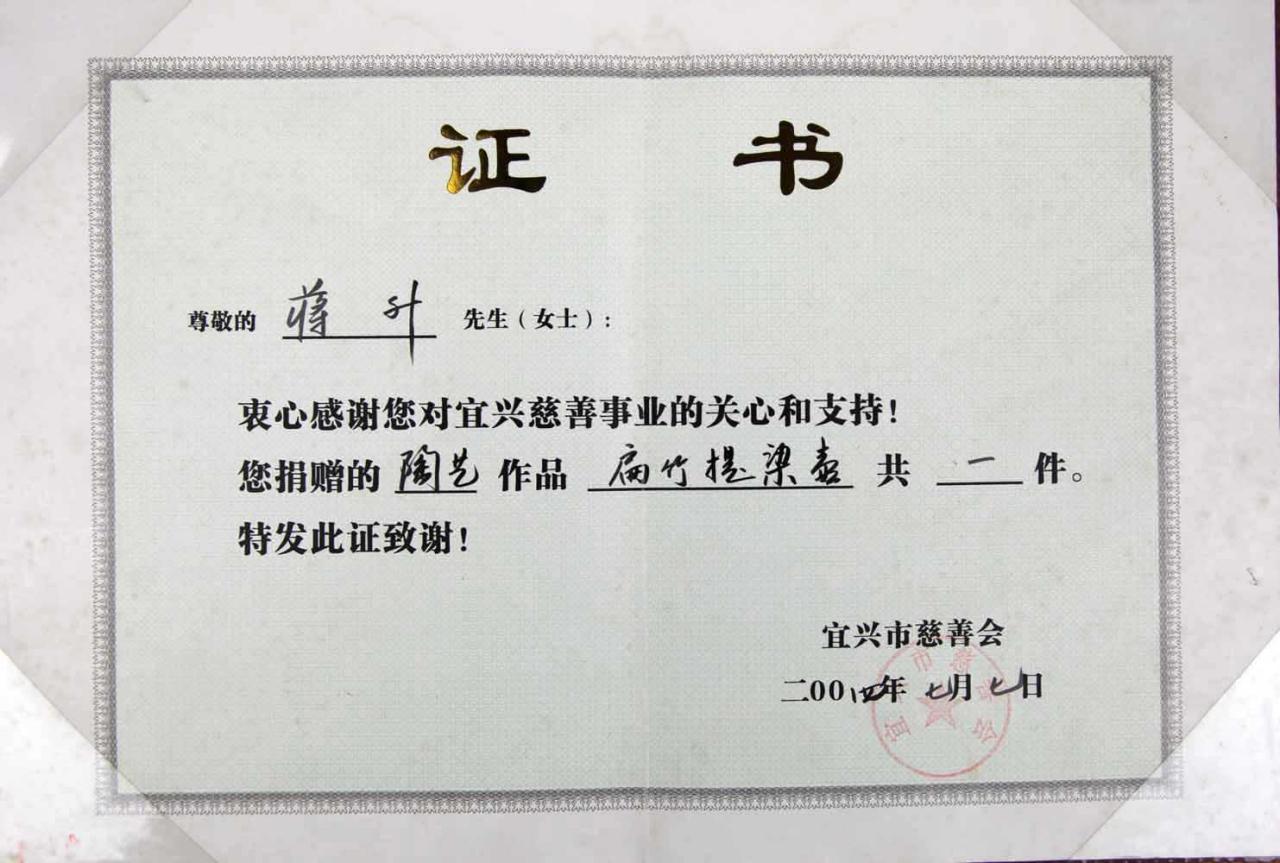 证 书
尊敬的 蒋升 先生（女士）：
衷心感谢您对宜兴慈善事业的关心和支持！
您捐赠的 陶艺 作品 扁竹提梁壶 共 一 件。
特发此证致谢！
宜兴市慈善会
二00四年 七月七日
宜兴市慈善会